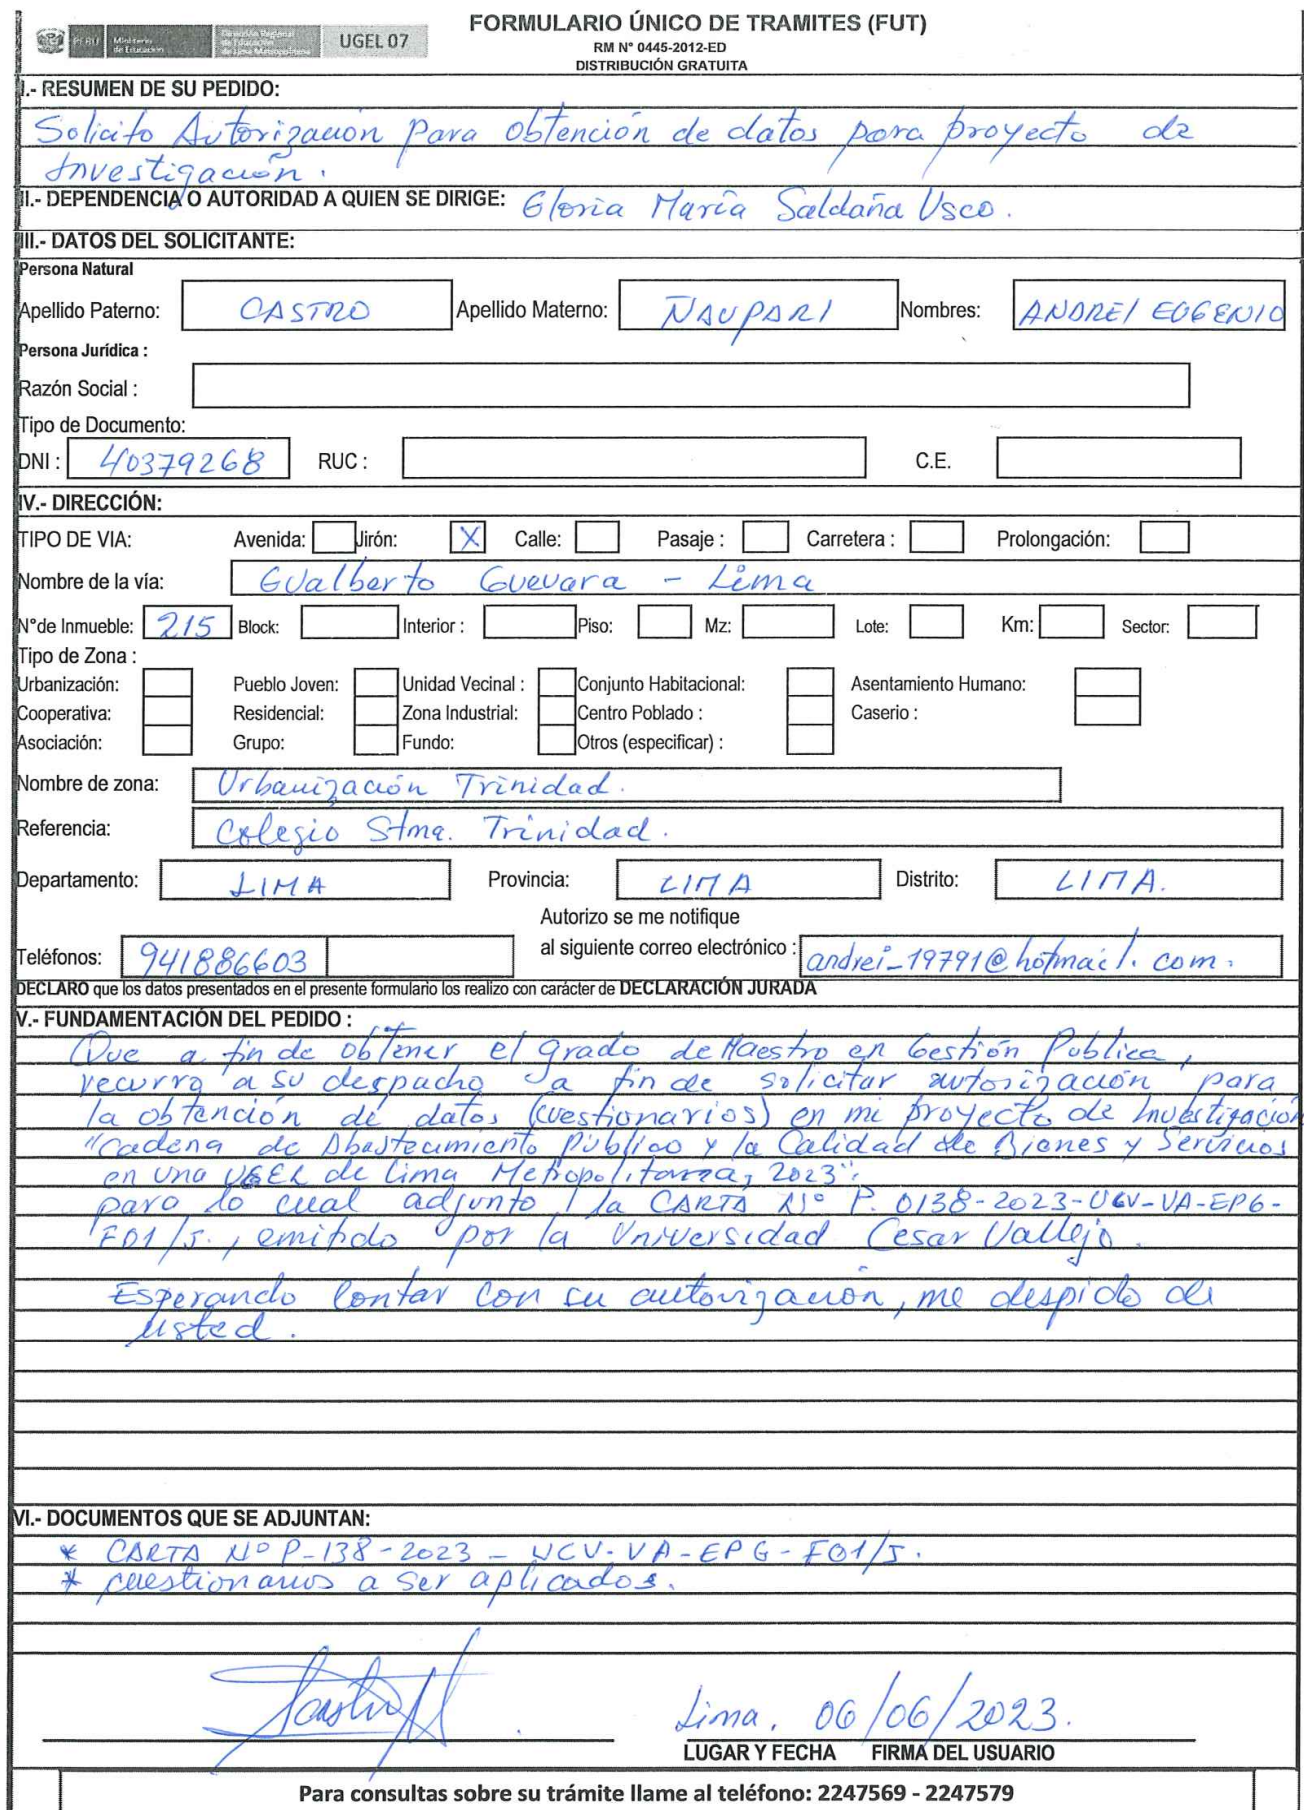 FORMULARIO ÚNICO DE TRAMITES (FUT)
PERÚ Ministerio de Educación Dirección Regional de Educación de Lima Metropolitana UGEL 07
RM N° 0445-2012-ED
DISTRIBUCIÓN GRATUITA
I.- RESUMEN DE SU PEDIDO:
Solicito Autorización para obtención de datos para proyecto de
Investigación.
II.- DEPENDENCIA O AUTORIDAD A QUIEN SE DIRIGE: Gloria María Saldaña Usco.
III.- DATOS DEL SOLICITANTE:
Persona Natural
Apellido Paterno: CASTRO Apellido Materno: ÑAUPARI Nombres: ANDREI EUGENIO
Persona Jurídica :
Razón Social :
Tipo de Documento:
DNI : 40379268 RUC : C.E.
IV.- DIRECCIÓN:
TIPO DE VIA: Avenida: Jirón: X Calle: Pasaje : Carretera : Prolongación:
Nombre de la vía: Gualberto Guevara - Lima
N°de Inmueble: 215 Block: Interior : Piso: Mz: Lote: Km: Sector:
Tipo de Zona :
Urbanización: Pueblo Joven: Unidad Vecinal : Conjunto Habitacional: Asentamiento Humano:
Cooperativa: Residencial: Zona Industrial: Centro Poblado : Caserio :
Asociación: Grupo: Fundo: Otros (especificar) :
Nombre de zona: Urbanización Trinidad.
Referencia: Colegio Stma. Trinidad.
Departamento: LIMA Provincia: LIMA Distrito: LIMA.
Autorizo se me notifique
Teléfonos: 941886603 al siguiente correo electrónico : andrei_19791@hotmail.com.
DECLARO que los datos presentados en el presente formulario los realizo con carácter de DECLARACIÓN JURADA
V.- FUNDAMENTACIÓN DEL PEDIDO :
Que a fin de obtener el grado de Maestro en Gestión Publica,
recurro a su despacho a fin de solicitar autorización para
la obtención de datos (cuestionarios) en mi proyecto de Investigación
"Cadena de Abastecimiento Público y la Calidad de Bienes y Servicios
en una UGEL de Lima Metropolitana, 2023";
para lo cual adjunto la CARTA N° P. 0138-2023-UCV-VA-EPG-
F01/J., emitido por la Universidad Cesar Vallejo.
Esperando contar con su autorización, me despido de
usted.
VI.- DOCUMENTOS QUE SE ADJUNTAN:
* CARTA N° P-138-2023-UCV-VA-EPG-F01/J.
* cuestionarios a ser aplicados.
Lima, 06/06/2023.
LUGAR Y FECHA FIRMA DEL USUARIO
Para consultas sobre su trámite llame al teléfono: 2247569 - 2247579